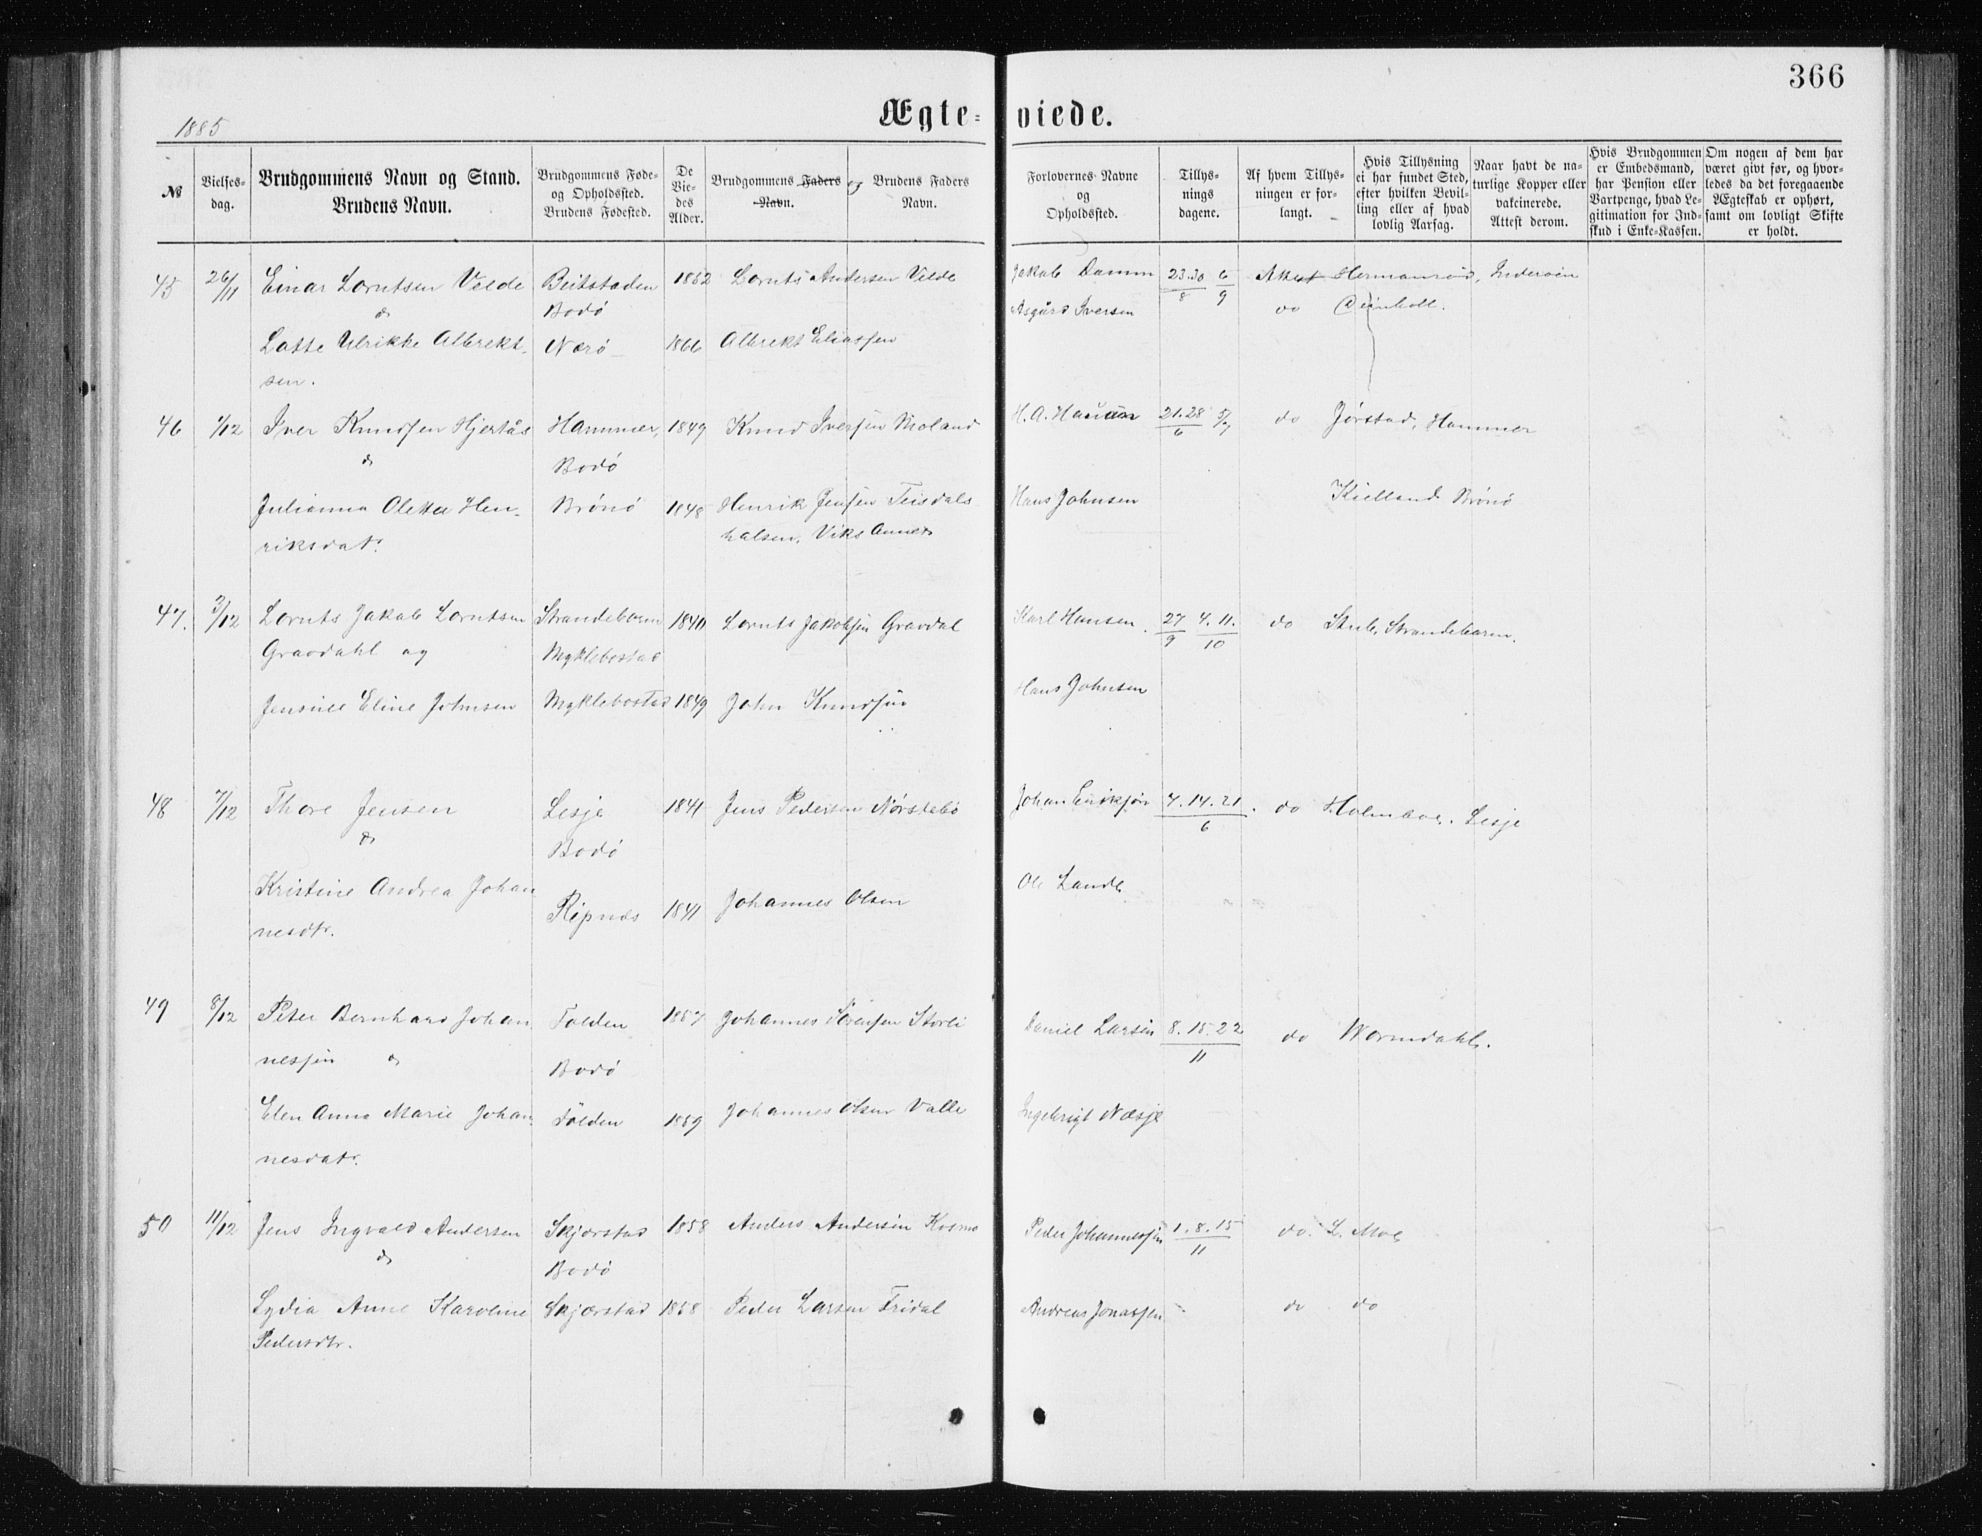 366
Ægteviede.
1885
№
Vielsesdag.
Brudgommens Navn og Stand.
Brudens Navn.
Brudgommens Føde-
og Opholdssted.
Brudens Fødested.
De
Vie-
des
Alder.
Brudgommens Faders og Brudens Faders
Navn. Navn.
Forlovernes Navne
og
Opholdssted.
Tillys-
nings
dagene.
Af hvem Tillys-
ningen er for-
langt.
Hvis Tillysning
ei har fundet Sted,
efter hvilken Bevil-
ling eller af hvad
lovlig Aarsag.
Naar havt de na-
turlige Kopper eller
vakcinerede.
Attest derom.
Hvis Brudgommen
er Embedsmand,
har Pension eller
Vartpenge, hvad Le-
gitimation for Ind-
skud i Enke-Kassen.
Om nogen af dem har
været gift før, og hvor-
ledes da det foregaaende
Ægteskab er ophørt,
samt om lovligt Skifte
er holdt.
45 26/11 Einar Lorntsen Velde Beitstaden 1862 Lornts Andersen Velde Jakob Damm 23.30/8 6/9 Attest Hermansrud, Inderøen
& Bodø Asgård Iversen do
Lotte Ulrikke Albrekt- Nærø 1866 Albrekt Eliassen
sen.
46 1/12 Iver Knudsen Hjertås Hammer, 1849 Knud Iversen Moland H. A. 21.28/6 5/7 do Jørstad, Hammer
& Bodø
Julianna Oletta Hen- Brønø 1848 Henrik Jensen Teisdals Hans Johnsen Kielland Brønø
riksdatr. halsen, Viks Annex
47. 3/12 Lornts Jakob Lorntsen Strandebarm 1840 Lornts Jakobsen Gravdal Karl Hansen. 27/9 4.11./10 do Stub, Strandebarm.
Gravdahl og Myklebostad
Jensine Eline Johnsen Myklebostad 1849 John Knudsen Hans Johnsen
48 7/12 Thore Jensen Lesje 1841 Jens Pedersen Nørstebø Johan Eriksen 7.14.21./6 do Holmboe. Lesje
& Bodø
Kristine Andrea Johan Ripnes 1841 Johannes Olsen Ole Lande
nesdtr.
49 8/12 Peter Bernhard Johan Folden 1857 Johannes Sørensen Storli Daniel Larsen 8.15.22/11 do Wormdahl.
nessen & Bodø
Elen Anna Marie Johan Folden 1859 Johannes Olsen Valle Ingebrigt Næsje
nesdatr.
50 11/12 Jens Ingvald Andersen Skjærstad 1858 Anders Andersen Kosmo Peder Johannessen 1.8.15/11 do. L. Moe
& Bodø
Lydia Anne Karoline Skjærstad 1858 Peder Larsen Fridal Andreas Jonassen do do
Pedersdtr.